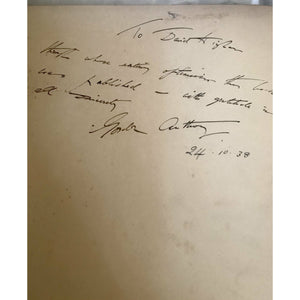 To David
whose optimism this book
was published — with gratitude in
all sincerity
Gordon Anthony
24 · 10 · 38